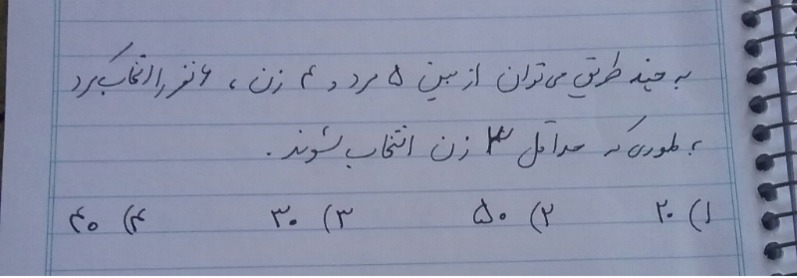 به چند طریق می‌توان از بین ۵ مرد و ۴ زن ، ۶ نفر را انتخاب کرد
بطوری که حداقل ۳ زن انتخاب بشوند .
۱) ۲۰ ۲) ۵۰ ۳) ۳۰ ۴) ۴۰